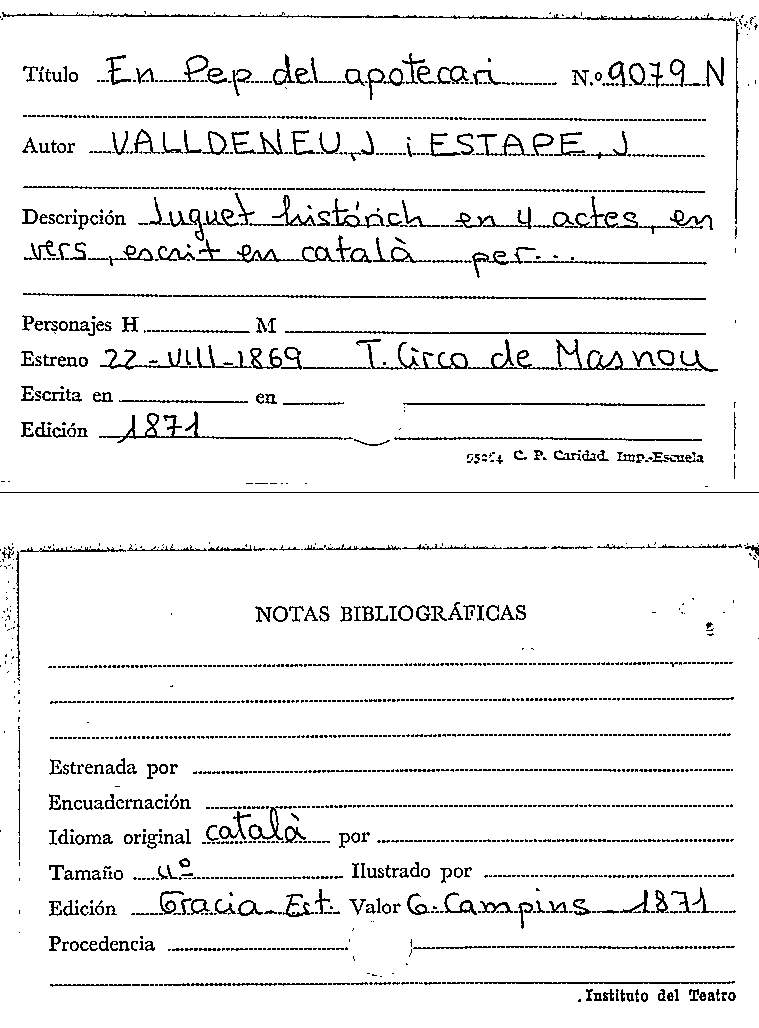 Título En Pep del apotecari N.º 9079 N
Autor VALLDENEU, J i ESTAPE, J
Descripción Juguet histórich en 4 actes, en
vers, escrit en català per...
Personajes H M
Estreno 22-VIII-1869 T. Circo de Masnou
Escrita en en
Edición 1871
C. P. Caridad. Imp.-Escuela
NOTAS BIBLIOGRÁFICAS
Estrenada por
Encuadernación
Idioma original català por
Tamaño 4º Ilustrado por
Edición Gracia Est. Valor G. Campins 1871
Procedencia
Instituto del Teatro